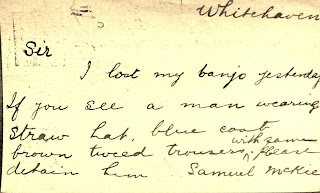 Whitehaven
Sir
I lost my banjo yesterday
If you see a man wearing
straw hat, blue coat
brown tweed trousers, with same please
detain him Samuel McKie